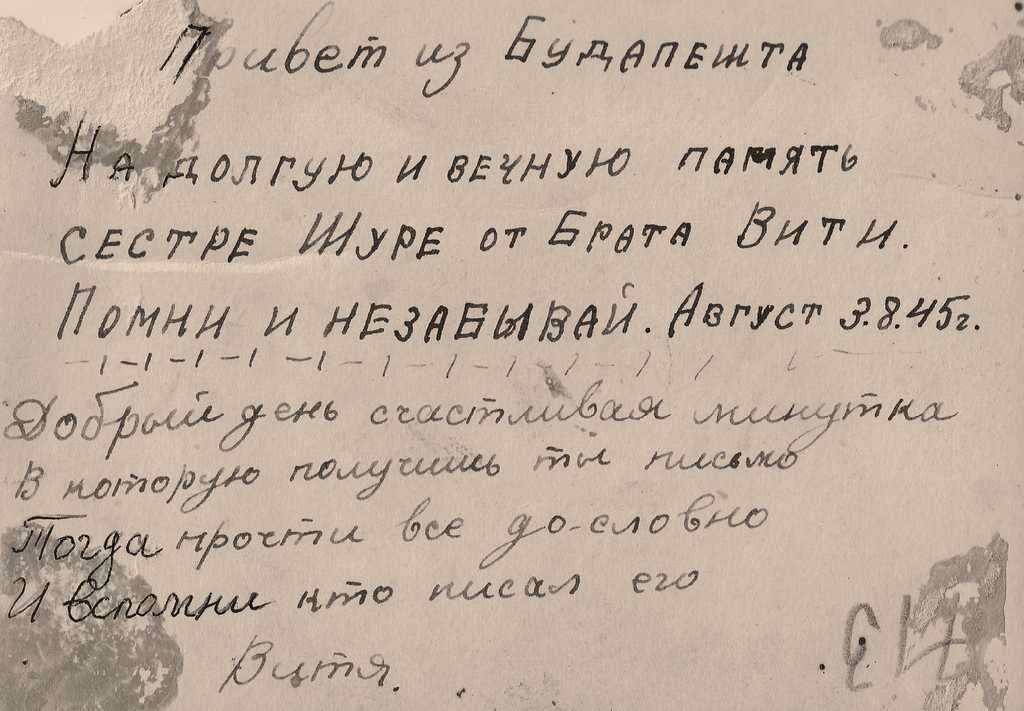 Привет из Будапешта
На долгую и вечную память
сестре Шуре от Брата Вити.
Помни и незабывай. Август 3.8.45г.
Добрый день счастливая минутка
В которую получишь ты письмо
Тогда прочти все до-словно
И вспомни кто писал его
Витя.